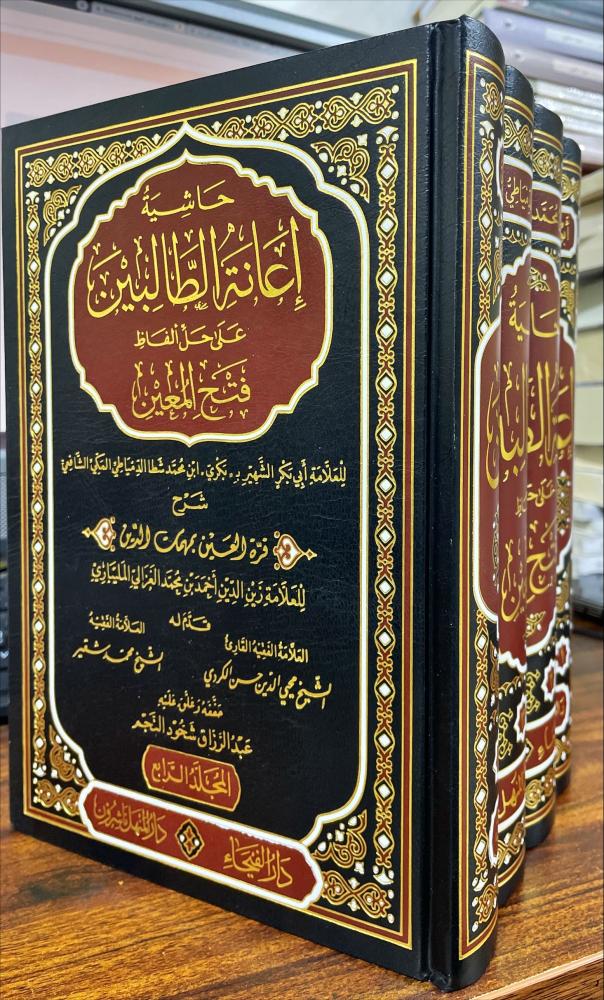 حَاشِيَةُ
إِعَانَةُ الطَّالِبِين
عَلَى حَلِّ أَلفَاظِ
فَتْحِ المُعِينْ
للعَلَّامَةِ أَبي بَكْرٍ الشَّهِيْرِ بـ «بَكْري» ابن مُحَمَّد شَطَا الدِّمْيَاطِيّ المَكِّيّ الشَّافِعِيّ
شَرْحُ
قرة العين بمهمات الدين
للعَلَّامَةِ زَيْنِ الدِّيْنِ أَحْمَد بْنِ مُحَمَّد الغزالي المليباري
قَدَّمَ لَه
العَلَّامَةُ الفَقِيهُ القَارِئُ
الشيخ محيي الدين حسن الكردي
العَلَّامَةُ الفَقِيهُ
الشيخ محمد شقير
حققه وعلق عليه
عَبْد الرَّزَّاق شَحُّود النَّجْم
المُجَلَّد الرَّابِع
دَارُ الفَيْحَاء
دَارُ المَنْهَل نَاشِرُون